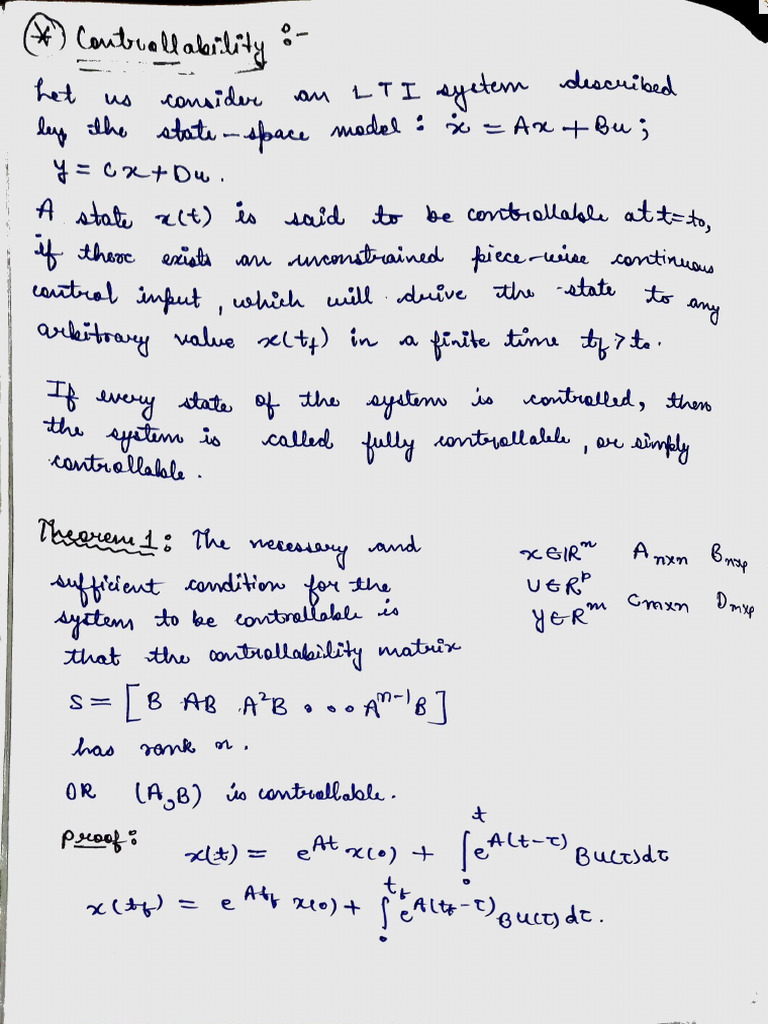 (*) Controllability :-
Let us consider an LTI system described
by the state-space model : ẋ = Ax + Bu ;
y = Cx + Du .
A state x(t) is said to be controllable at t=t₀,
if there exists an unconstrained piece-wise continuous
control input, which will drive the state to any
arbitrary value x(t_f) in a finite time t_f > t₀.
If every state of the system is controlled, then
the system is called fully controllable, or simply
controllable.
Theorem 1 : The necessary and
sufficient condition for the
system to be controllable is
that the controllability matrix
S = [B AB A²B ... Aⁿ⁻¹B]
has rank n.
OR (A,B) is controllable.
x∈ℝⁿ A_{n×n} B_{n×p}
U∈R^p C_{m×n} D_{m×p}
y∈R^m
Proof :
x(t) = e^{At} x(0) + ∫₀^t e^{A(t-τ)} Bu(τ)dτ
x(t_f) = e^{At_f} x(0) + ∫₀^{t_f} e^{A(t_f-τ)} Bu(τ)dτ.